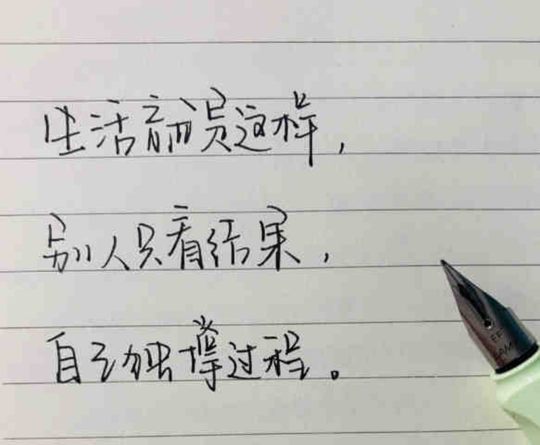 生活就是这样,
别人只看结果,
自己独撑过程。